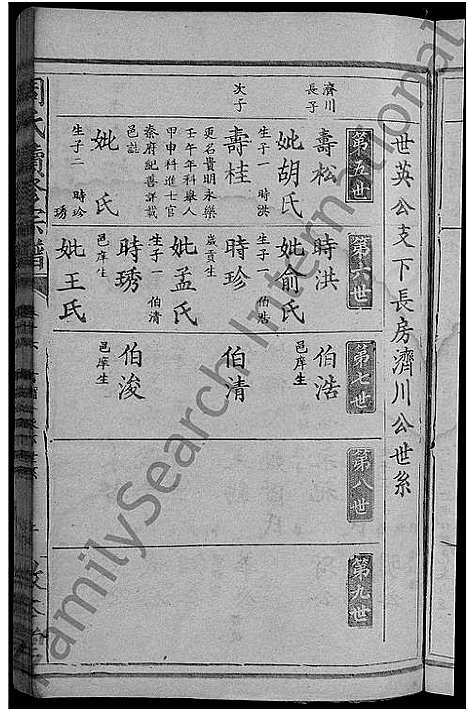 世英公支下長房濟川公世系
第五世
濟川長子
壽松
妣胡氏
生子一 時洪
次子
壽桂
更名貴明永樂
壬午年科舉人
甲申科進士官
秦府紀善詳載
邑誌
妣 氏
生子二 時珍 時琇
第六世
時洪
妣俞氏
生子一 伯浩
時珍
歲貢生
妣孟氏
生子一 伯清
時琇
邑庠生
妣王氏
第七世
伯浩
邑庠生
伯清
伯浚
邑庠生
第八世
第九世
周氏續修宗譜
FamilySearch International